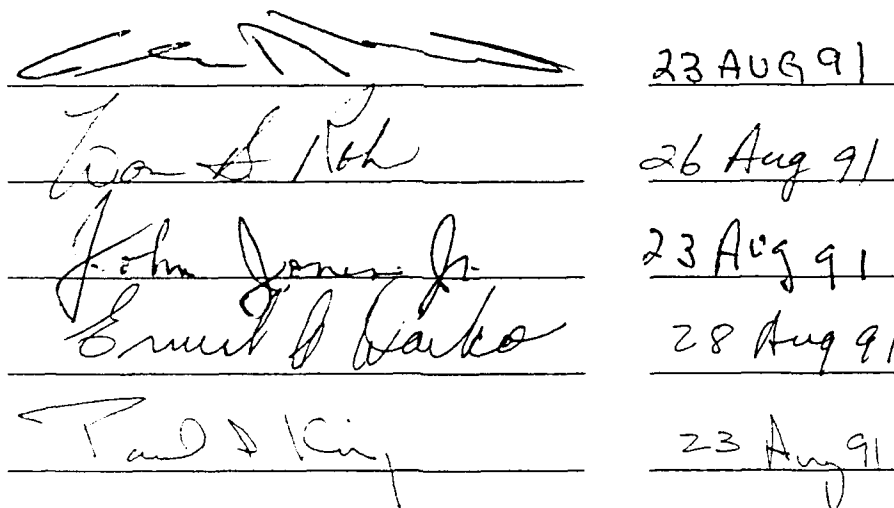 23 AUG 91
Won S Roh 26 Aug 91
John Jones Jr. 23 Aug 91
Ernest A Haiko 28 Aug 91
Paul King 23 Aug 91